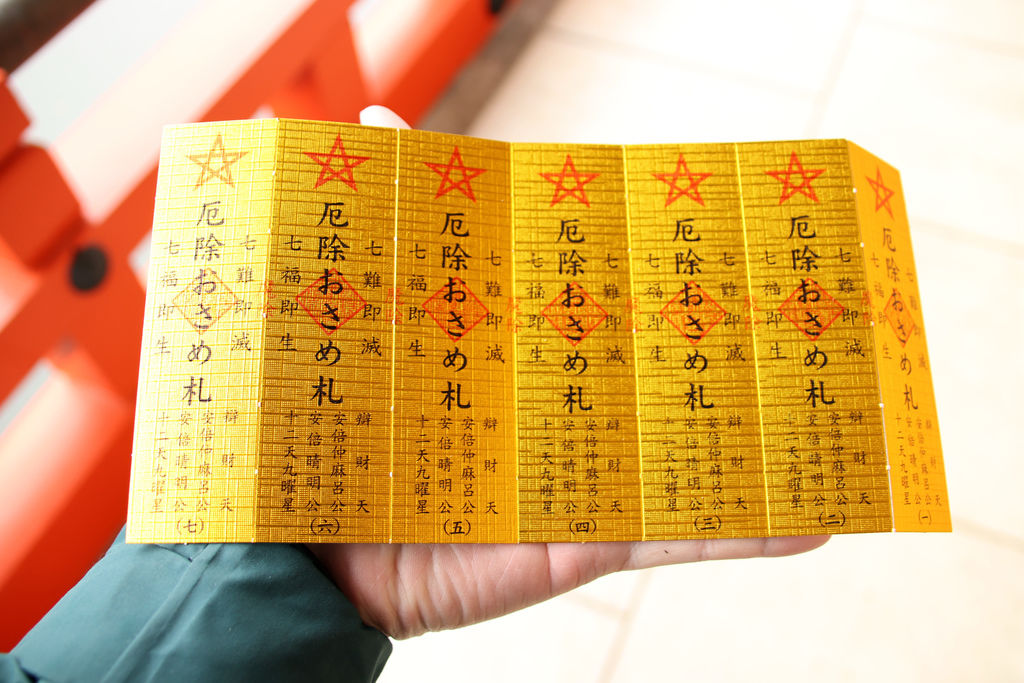 七難即滅
厄除おさめ札
七福即生
辯財天
安倍仲麻呂公
安倍晴明公
十二天九曜星
(一)
七難即滅
厄除おさめ札
七福即生
辯財天
安倍仲麻呂公
安倍晴明公
十二天九曜星
(二)
七難即滅
厄除おさめ札
七福即生
辯財天
安倍仲麻呂公
安倍晴明公
十二天九曜星
(三)
七難即滅
厄除おさめ札
七福即生
辯財天
安倍仲麻呂公
安倍晴明公
十二天九曜星
(四)
七難即滅
厄除おさめ札
七福即生
辯財天
安倍仲麻呂公
安倍晴明公
十二天九曜星
(五)
七難即滅
厄除おさめ札
七福即生
辯財天
安倍仲麻呂公
安倍晴明公
十二天九曜星
(六)
七難即滅
厄除おさめ札
七福即生
辯財天
安倍仲麻呂公
安倍晴明公
十二天九曜星
(七)